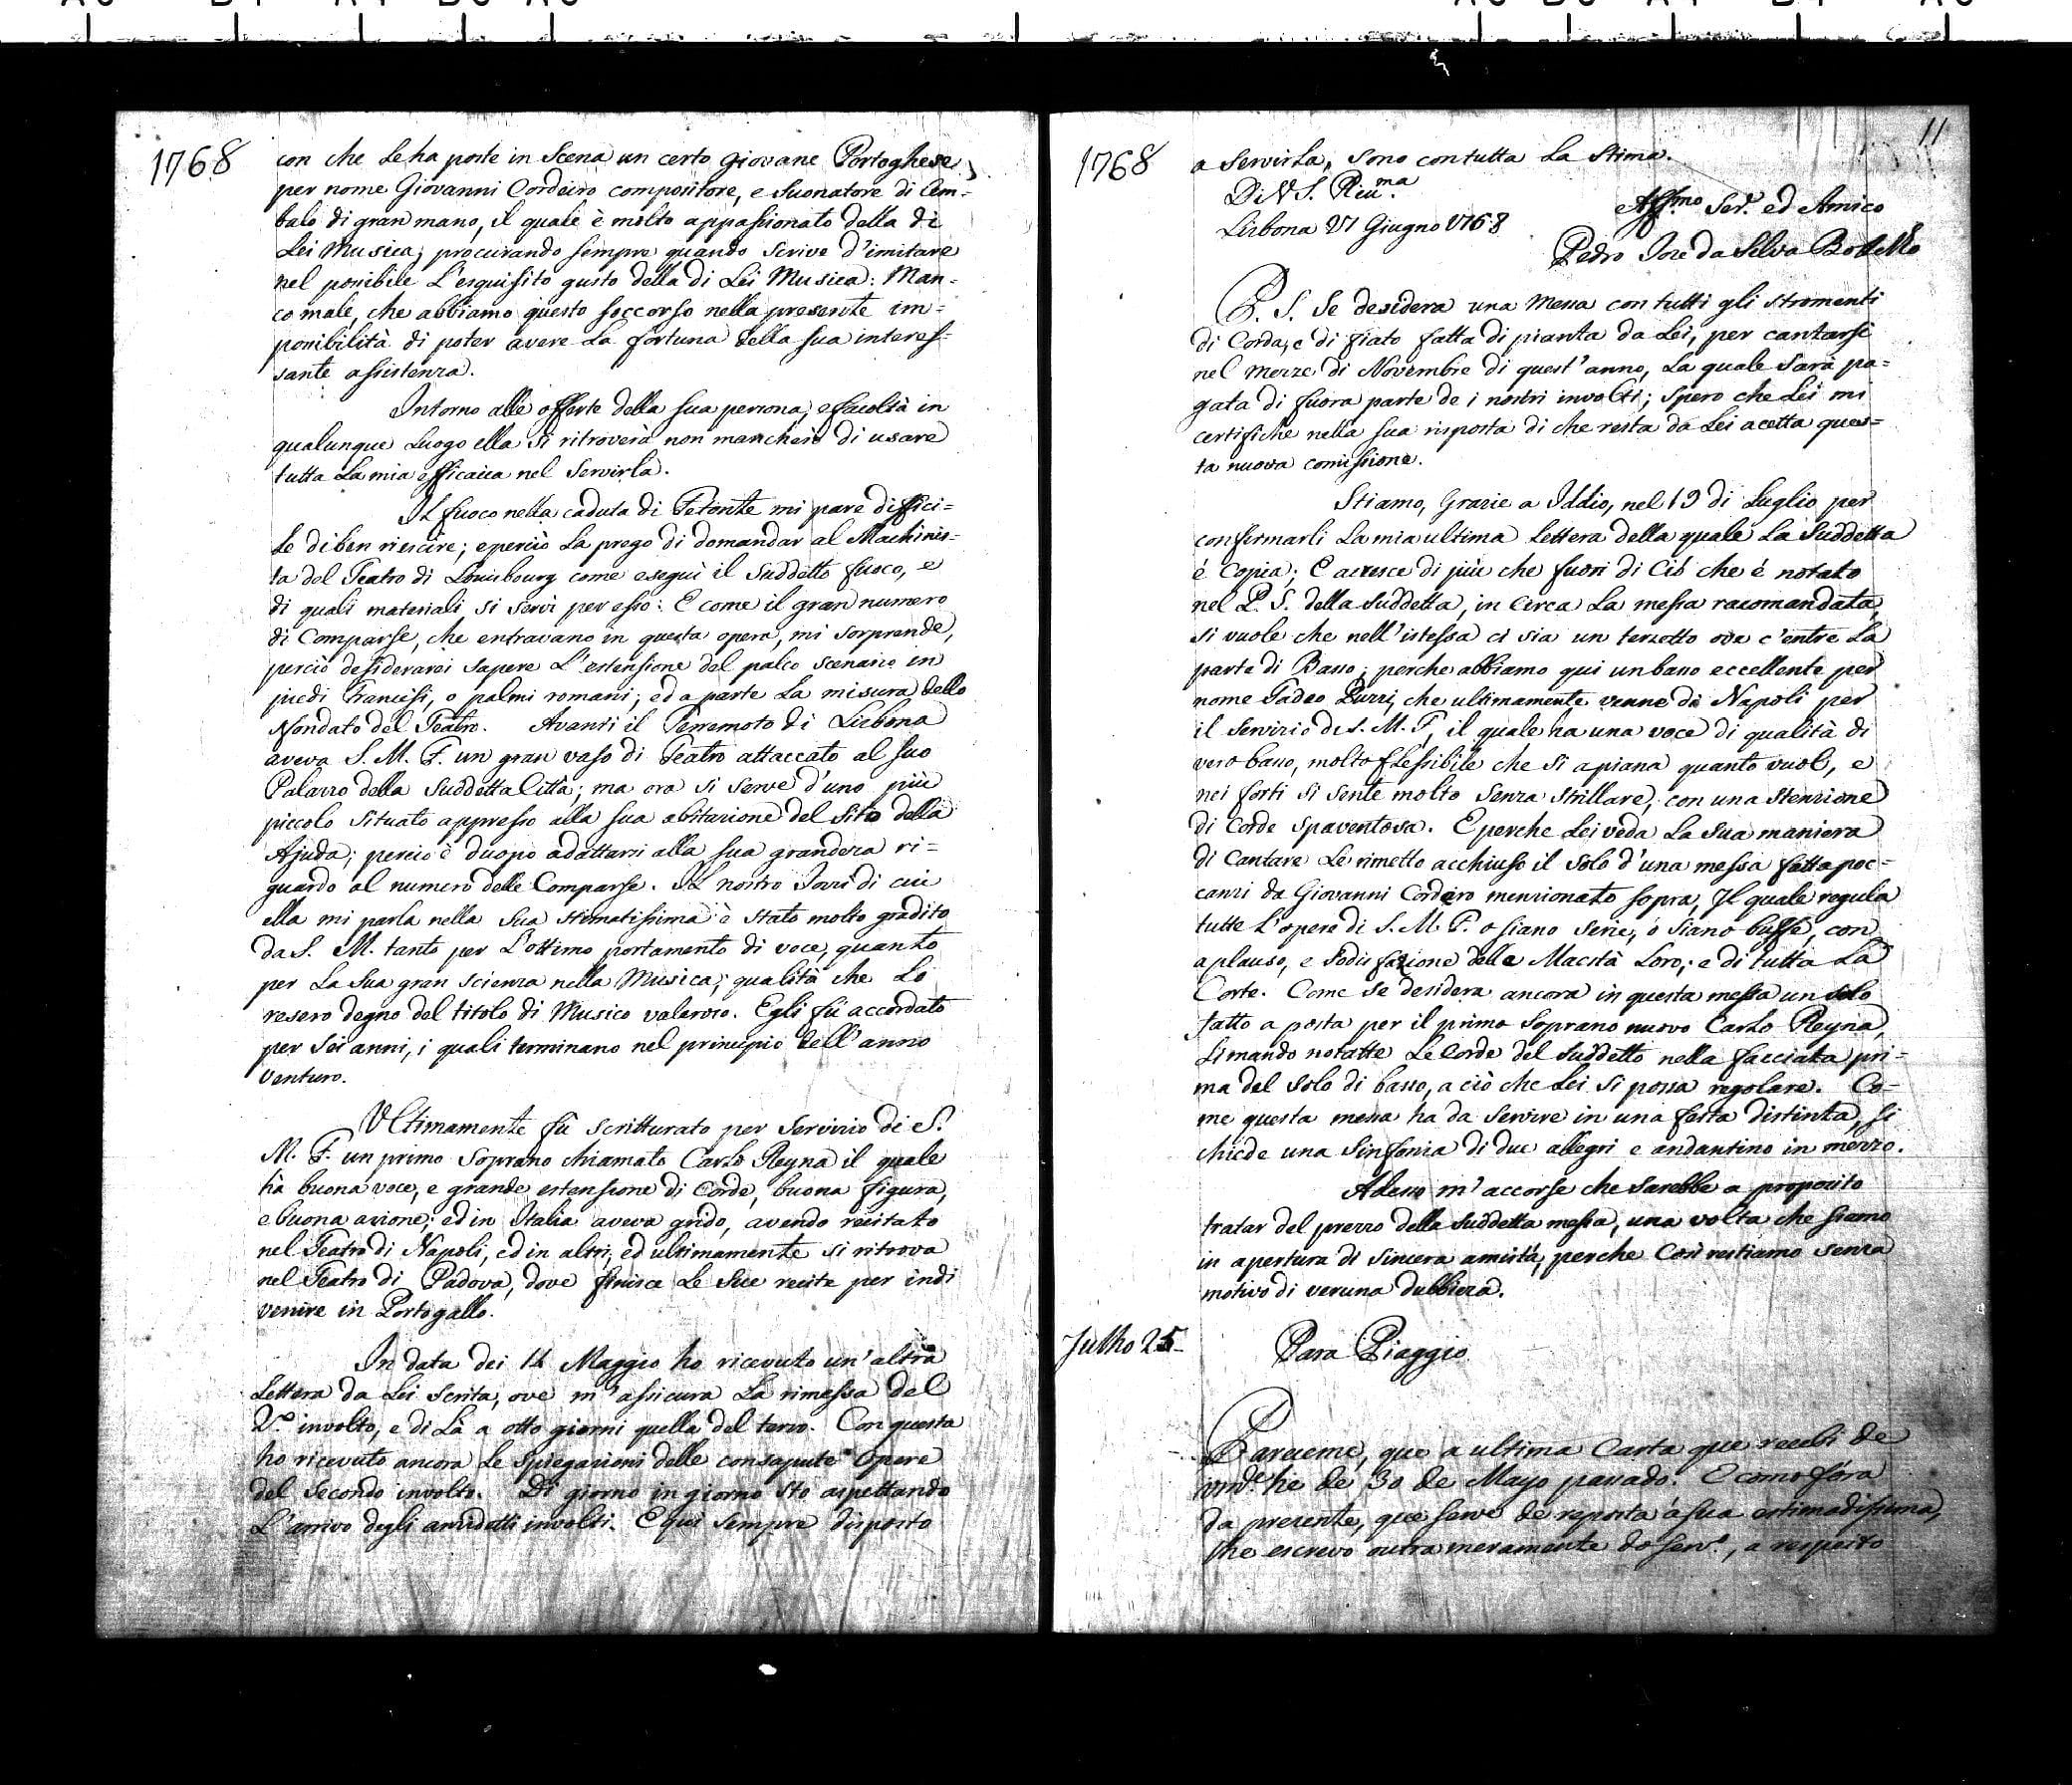 1768
con che le ha poste in Scena un certo giovane Portoghese,
per nome Giovanni Cordeiro compositore, e Suonatore di Cem=
balo di gran mano, il quale è molto appassionato della di
Lei Musica; procurando sempre quando scrive d'imitare
nel possibile l'esquisito gusto della di Lei Musica: Man=
co male, che abbiamo questo soccorso nella presente im=
possibilità di poter avere la fortuna della sua interes=
sante assistenza.
Intorno alle offerte della sua persona, e facoltà in
qualunque luogo ella si ritroverà non mancherò di usare
tutta la mia efficacia nel Servirla.
Il fuoco nella caduta di Fetonte mi pare diffici=
le di ben riescire; e perciò la prego di domandar al Machinis=
ta del Teatro di Louisbourg come eseguì il suddetto fuoco, e
di quali materiali, si servì per esso: E come il gran numero
di Comparse, che entravano in questa opera, mi sorprende,
perciò desiderarei sapere l'estensione del palco scenario in
piedi francesi, o palmi romani; ed a parte la misura dello
Mondato del Teatro. Avanti il Terremoto di Lisbona
aveva S. M. F. un gran vaso di Teatro attaccato al suo
Palazzo della suddetta Città; ma ora si serve d'uno più
piccolo situato appresso alla sua abitazione del sito della
Ajuda; perciò è duopo adattarsi alla sua grandeza ri=
guardo al numero delle Comparse. Il nostro Jozzi di cui
ella mi parla nella sua stimatissima è stato molto gradito
da S. M. tanto per l'ottimo portamento di voce, quanto
per la sua gran scienza nella Musica; qualità che lo
resero degno del titolo di Musico valoroso. Egli fù accordato
per sei anni, i quali terminano nel principio dell'anno
venturo.
Ultimamente fù scritturato per Servizio di S.
M. F. un primo Soprano chiamato Carlo Reyna il quale
hà buona voce, e grande estensione di Corde, buona figura,
e buona azione; ed in Italia aveva grido, avendo recitato
nel Teatro di Napoli, ed in altri, ed ultimamente si ritrova
nel Teatro di Padova, dove finisce le sue recite per indi
venire in Portogallo.
In data dei 14 Maggio ho ricevuto un'altra
lettera da Lei scrita, ove m'assicura la rimessa del
2.º involto, e di là a otto giorni quella del terzo. Con questa
ho ricevuto ancora le spiegazioni delle consapute Opere
del secondo involto. Di giorno in giorno sto aspettando
l'arrivo degli anzidetti involti. E qui sempre disposto
11
1768
a Servirla, sono con tutta la stima.
Di V. S. Rev.ma
Lisbona 21 Giugno 1768
Aff.mo Ser.e ed Amico
Pedro Jozé da Silva Botelho
P. S. Se desidera una Messa con tutti gli stromenti
di Corda, e di fiato fatta di pianta da Lei, per cantarsi
nel mezze di Novembre di quest'anno, la quale sarà pa=
gata di fuora parte de i nostri involti; Spero che Lei mi
certifiche nella sua risposta di che resta da Lei acetta ques=
ta nuova comissione.
Stiamo, Grazie a Iddio, nel 19 di Luglio per
confirmarli la mia ultima lettera della quale la Suddetta
é Copia; E acresce di più che fuori di Ciò che é notato
nel P. S. della Suddetta, in circa la messa racomandata,
si vuole che nell'istessa ci sia un terzetto ova c'entre la
parte di Basso; perche abbiamo qui un basso eccellente per
nome Tadeo Puzzi, che ultimamente venne da Napoli per
il Servizio di S. M. F, il quale ha una voce di qualità di
vero basso, molto flessibile che si apiana quanto vuole, e
nei forti si sente molto senza strillare, con una stenzione
di Corde spaventosa. E perche Lei veda la sua maniera
di Cantare le rimetto acchiuso il Solo d'una messa fatta poc=
canzi da Giovanni Cordero menzionato sopra, Il quale regula
tutte l'opere di S. M. F. o siano serie, ó siano buffe, con
aplauso, e sodisfazione delle Maestà Loro, e di tutta la
Corte. Come se desidera ancora in questa messa un solo
fatto a posta per il primo Soprano nuovo Carlo Reyna,
li mando notatte le Corde del Suddetto nella facciata pri=
ma del solo di basso, a ciò che Lei si possa regolare. Co=
me questa messa ha da Servire in una festa distinta, si
chiede una Sinfonia di due allegri e andantino in mezzo.
Adesso m'accorse che sarebbe a proposito
tratar del prezzo della Suddetta messa, una volta che siamo
in apertura di sincera amistá, perche Così restiamo senza
motivo di veruna dubbieza.
Julho 25
Para Piaggio
Pareceme, que a ultima Carta que recebi de
vm.ce he de 30 de Mayo passado. E como fóra
da prezente, que serve de reposta á sua estimadissima,
lhe escrevo outra meramente do serv.º, a respeito